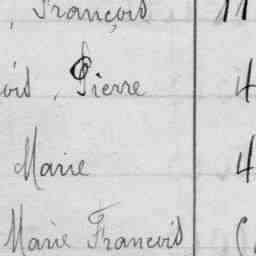 , François 11
ois, Pierre 4
Marie 4
Marie François